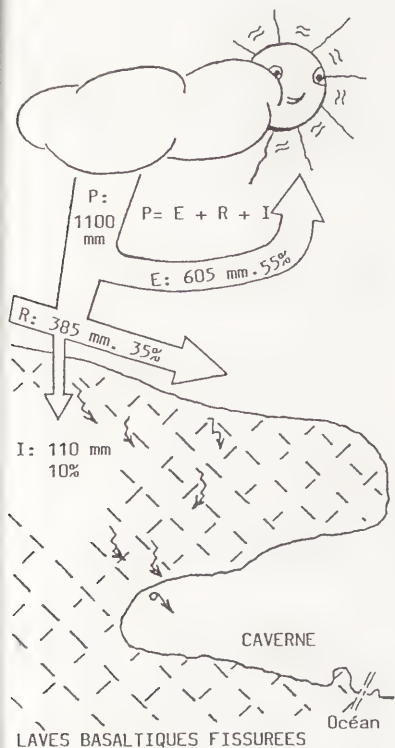 P:
1100
mm
P= E + R + I
E: 605 mm. 55%
R: 385 mm. 35%
I: 110 mm
10%
CAVERNE
Océan
LAVES BASALTIQUES FISSUREES